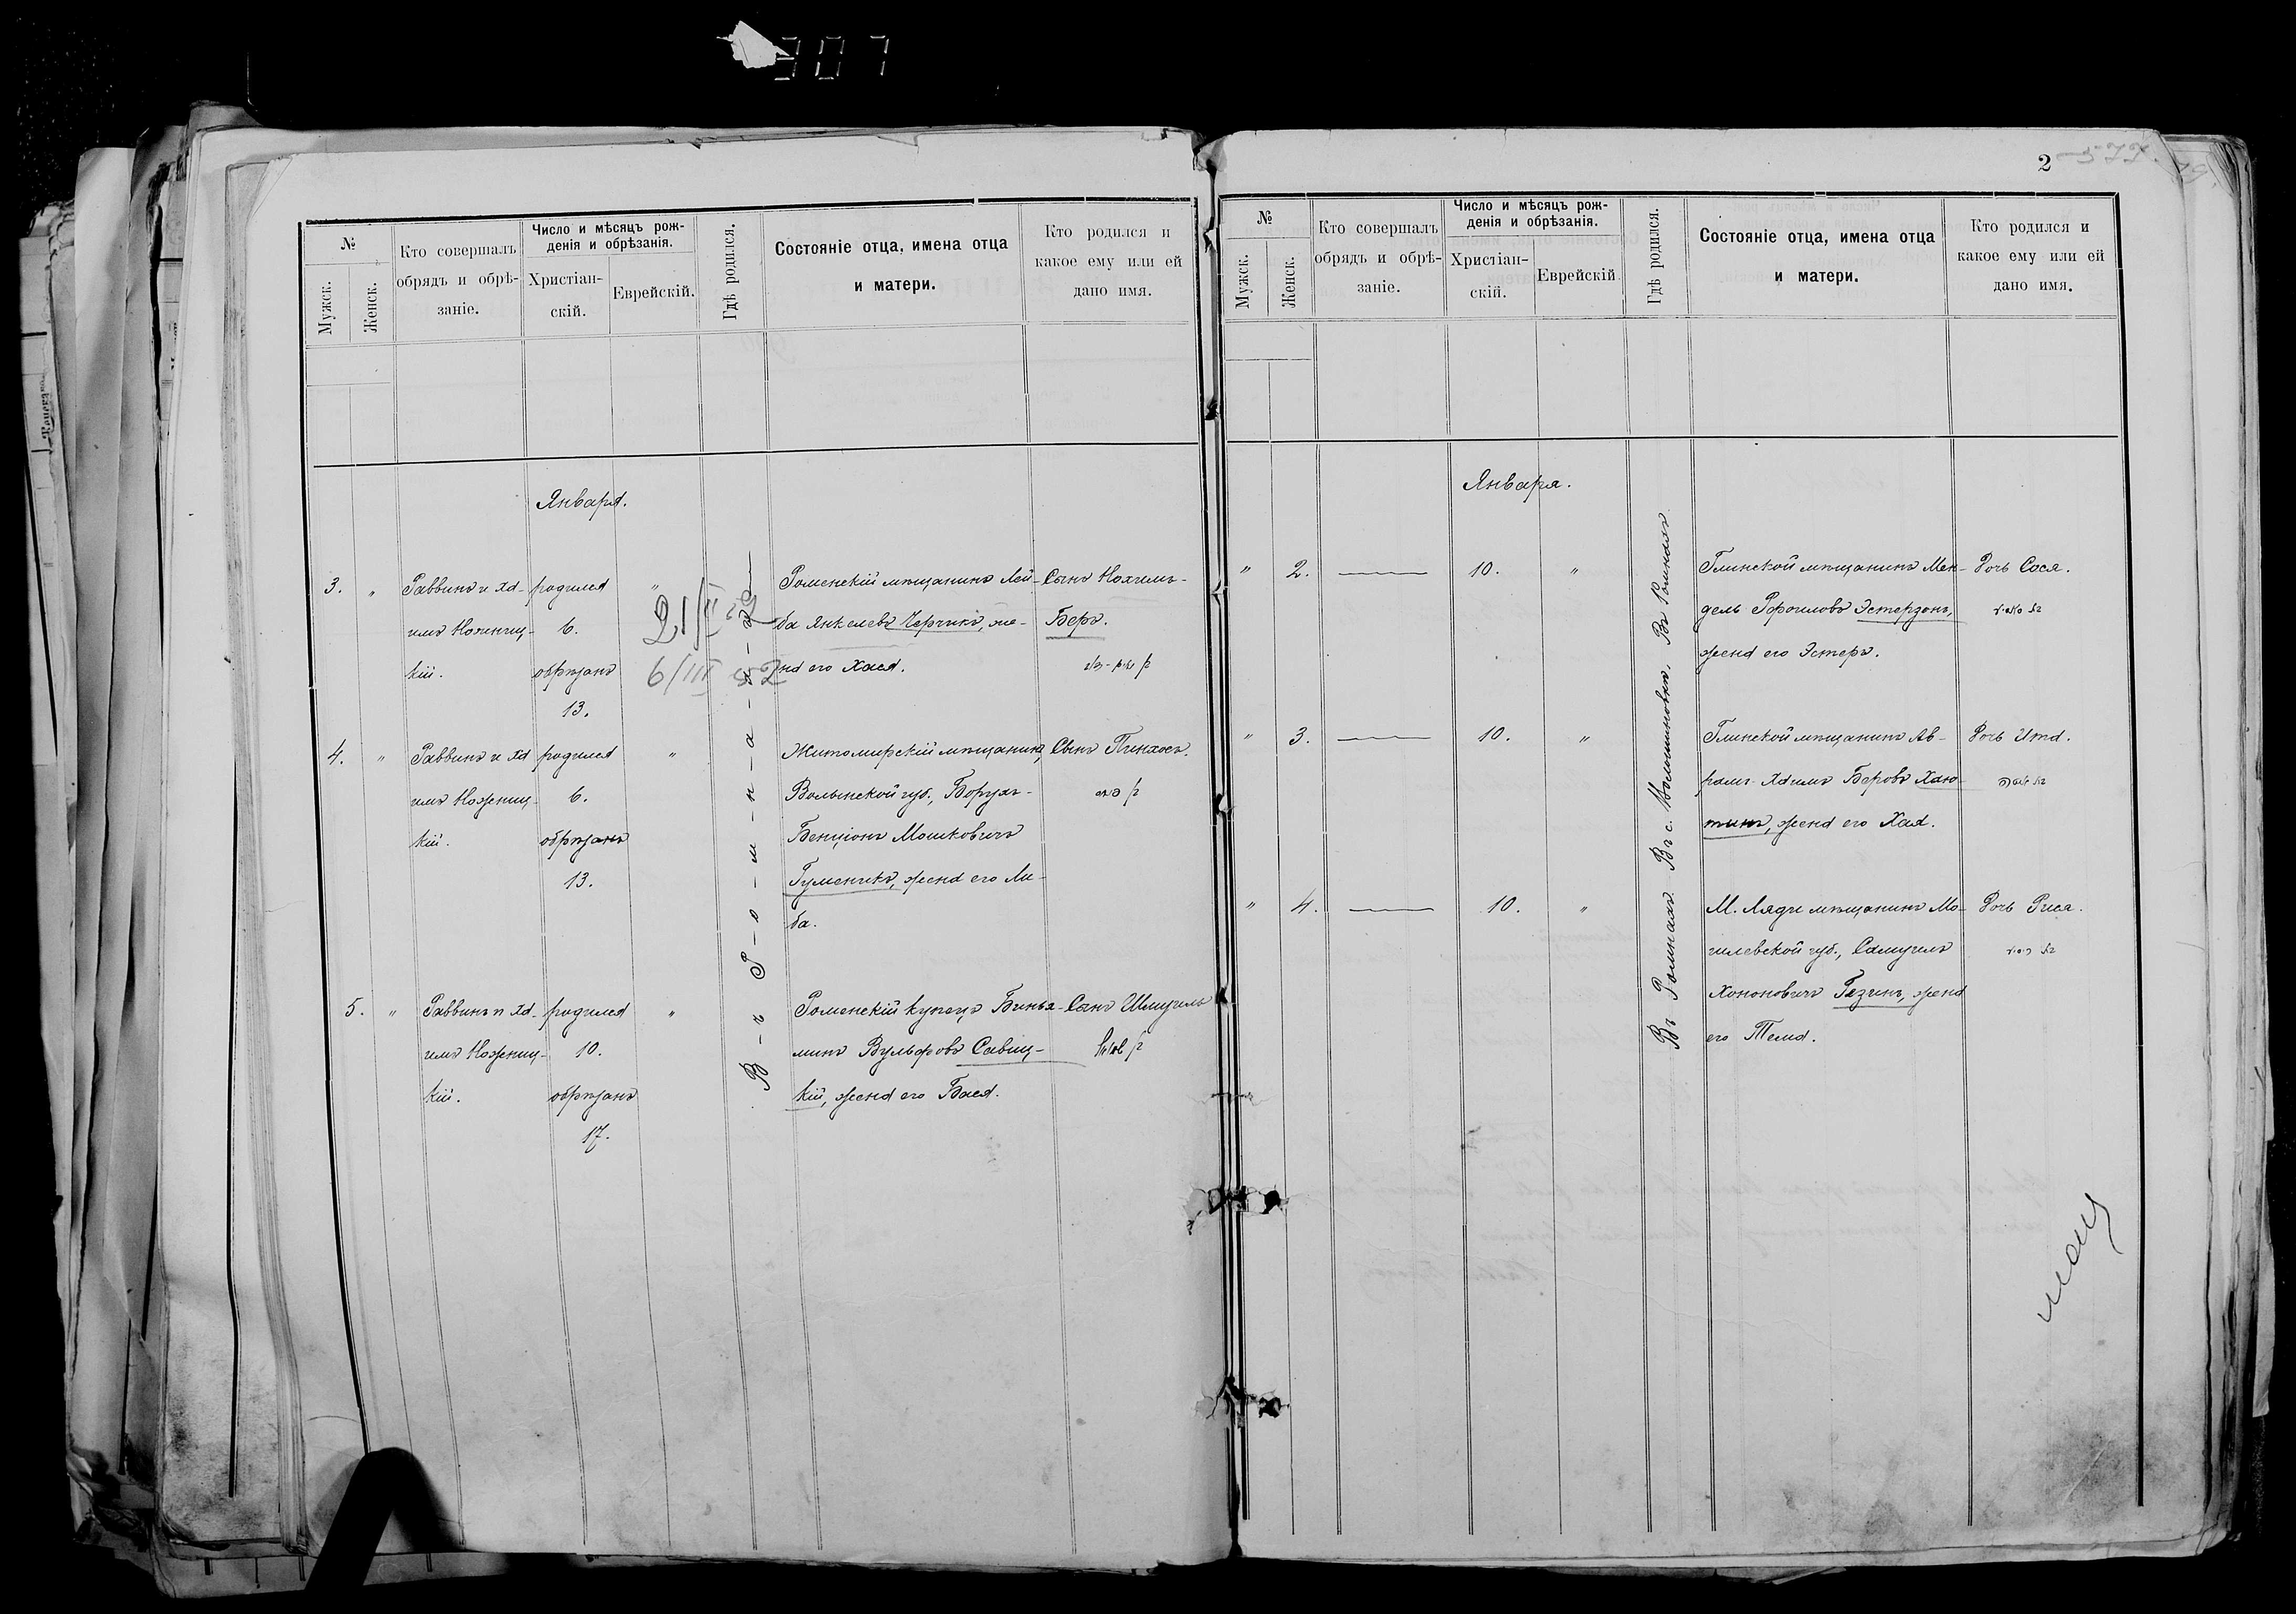 307
№
Мужск.
Женск.
Кто совершалъ
обрядъ и обрѣ-
заніе.
Число и мѣсяцъ рож-
денія и обрѣзанія.
Христіан-
скій.
Еврейскій.
Гдѣ родился.
Состояніе отца, имена отца
и матери.
Кто родился и
какое ему или ей
дано имя.
Января.
3.
"
Раввинъ и Ха-
имъ
кій.
родился
6.
обрѣзанъ
13.
"
21/II 52
6/III 52
Роменскій мѣщанинъ Лей-
ба Янкелевъ Черчикъ, же-
на его Хася.
Сынъ Нохимъ-
Беръ.
4.
"
Раввинъ и Ха
имъ
кій.
родился
6.
обрѣзанъ
13.
"
Житомирскій мѣщанинъ,
Волынской губ., Борухъ-
Бенціонъ Мошковичъ
Гуменикъ, жена его Ли-
ба.
Сынъ Пинхосъ.
5.
"
Раввинъ и Ха-
имъ
кій.
родился
10.
обрѣзанъ
17.
"
Роменскій купецъ Бинья-
минъ Вульфовъ Савиц-
кій, жена его Бася.
Сынъ Шмуель
В-ъ Р-о-м-н-а-х-ъ
2
577.
№
Мужск.
Женск.
Кто совершалъ
обрядъ и обрѣ-
заніе.
Число и мѣсяцъ рож-
денія и обрѣзанія.
Христіан-
скій.
Еврейскій
Гдѣ родился.
Состояніе отца, имена отца
и матери.
Кто родился и
какое ему или ей
дано имя.
Января.
" 2. 10. "
Глинской мѣщанинъ Мен-
дель Эстерзонъ,
жена его Эстеръ.
Дочь Сося.
" 3. 10. "
Глинской мѣщанинъ Ав-
рамъ-Хаимъ Беровъ
жена его Хая.
Дочь Ита.
" 4. 10. "
М. Ляды мѣщанинъ Мо-
гилевской губ., Самуилъ
Хононовичъ Гезинъ, жена
его Тема.
Дочь Рися.
Въ Ромнахъ. Въ с. Въ Ромнахъ